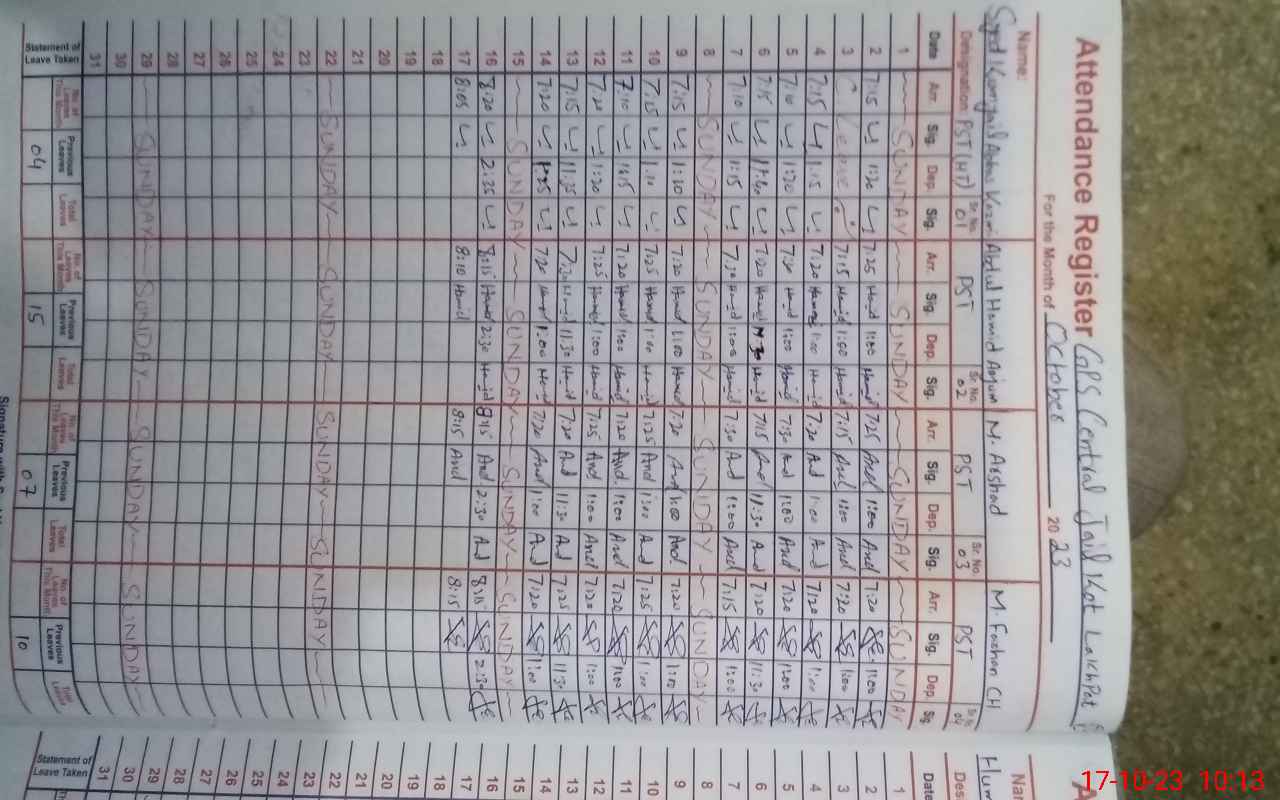 Attendance Register GPS Central Jail Kot LakhPat
For the Month of October 2023
Name: Syed Abbas Kazmi Abdul Hamid Anjum M. Arshad M. Farhan CH
Designation PST (HT) Sr. No. 01 PST Sr. No. 02 PST Sr. No. 03 PST Sr. No. 04
Date Arr. Sig. Dep. Sig. Arr. Sig. Dep. Sig. Arr. Sig. Dep. Sig. Arr. Sig. Dep. Sig.
1 SUNDAY SUNDAY SUNDAY SUNDAY
2 7:15 1:20 7:25 Hamid 1:00 Hamid 7:25 1:00 7:20 1:00
3 Leave 7:15 Hamid 1:00 Hamid 7:15 1:00 7:20 1:00
4 7:15 1:15 7:20 Hamid 1:00 Hamid 7:20 1:00 7:20 1:00
5 7:10 1:20 7:30 Hamid 1:00 Hamid 7:30 1:00 7:20 1:00
6 7:15 7:20 Hamid Hamid 7:15 11:30 7:20 11:30
7 7:10 1:15 7:30 Hamid 1:00 Hamid 7:30 1:00 7:15 1:00
8 SUNDAY SUNDAY SUNDAY SUNDAY
9 7:15 1:10 7:20 Hamid 1:00 Hamid 7:20 1:00 7:20 1:00
10 7:15 1:10 7:25 Hamid 1:00 Hamid 7:25 1:00 7:25 1:00
11 7:10 1:15 7:20 Hamid 1:00 Hamid 7:20 1:00 7:20 1:00
12 7:20 1:20 7:25 Hamid 1:00 Hamid 7:25 1:00 7:20 1:00
13 7:15 11:35 7:20 Hamid 11:30 Hamid 7:20 11:30 7:25 11:30
14 7:20 7:20 Hamid 1:00 Hamid 7:20 1:00 7:20 1:00
15 SUNDAY SUNDAY SUNDAY SUNDAY
16 8:20 2:35 8:15 Hamid 2:30 Hamid 8:15 2:30 8:15 2:30
17 8:05 8:10 Hamid 8:15 8:15
18
19
20
21
22 SUNDAY SUNDAY SUNDAY SUNDAY
23
24
25
26
27
28
29 SUNDAY SUNDAY SUNDAY SUNDAY
30
31
Statement of Leave Taken No. of Leaves This Month Previous Leaves Total Leaves No. of Leaves This Month Previous Leaves Total Leaves No. of Leaves This Month Previous Leaves Total Leaves No. of Leaves This Month Previous Leaves Total Leaves
04 15 07 10
Date
1
2
3
4
5
6
7
8
9
10
11
12
13
14
15
16
17
18
19
20
21
22
23
24
25
26
27
28
29
30
31
Statement of
Leave Taken
17-10-23 10:13